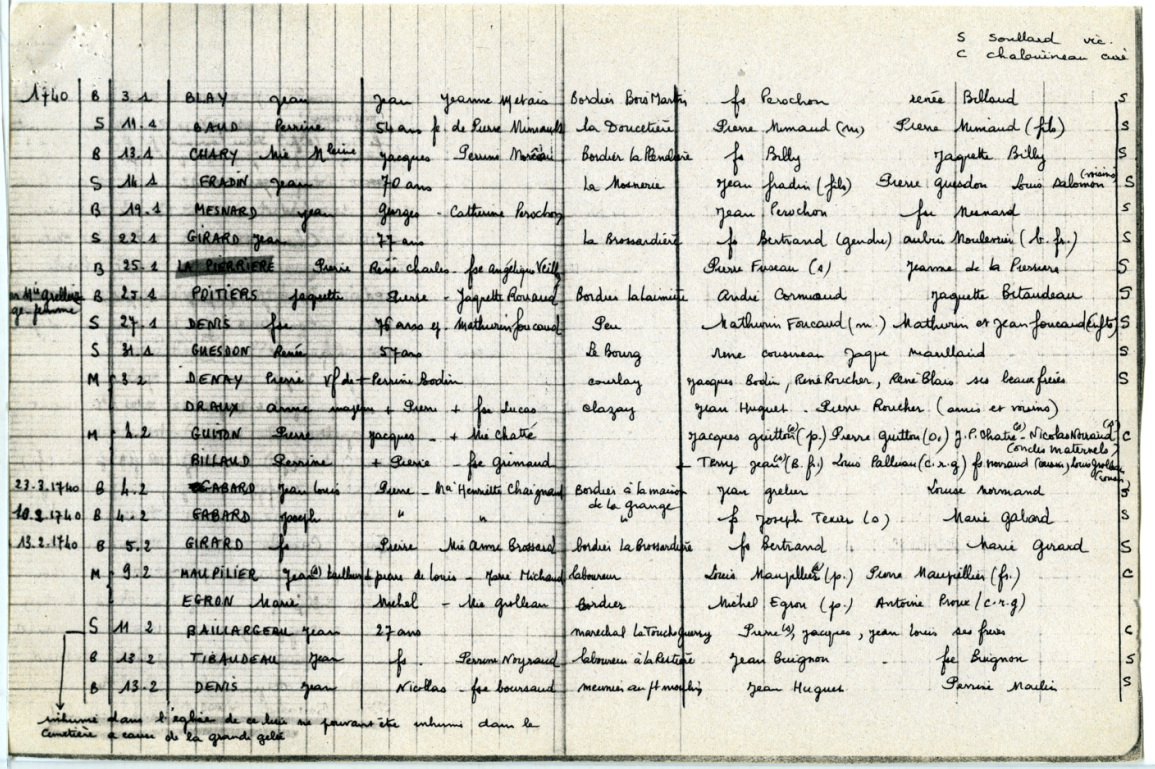 S soullard vic.
C chalouineau curé
1740 B 3.1 BLAY Jean Jean Jeanne Metais Bordier Bois Martin fs Perochon renée Billaud S
S 11.1 BAUD Perrine 54 ans f. de Pierre Mimault la Doucetière Pierre Mimaud (m) Pierre Mimaud (fils) S
B 13.1 CHARY Mie Mleine Jacques - Perrine Bordier fs Billy Jaquette Billy S
S 14.1 FRADIN Jean 70 ans La Mosnerie Jean fradin (fils) Pierre Guesdon Louis Salomon (voisins) S
B 19.1 MESNARD Jean Georges - Catherine Perochon Jean Perochon fse Mesnard S
S 22.1 GIRARD Jean 77 ans La Brossardière fs Bertrand (gendre) aubin (b. fr.) S
B 25.1 LA PIERRIERE Pierre René Charles - fse Angélique Pierre Fuseau (s) Jeanne de la Pierriere S
B 25.1 POITIERS Jaquette Pierre - Jaquette Bordier André Jaquette Bitaudeau S
S 27.1 DENIS fse 76 ans Mathurin foucaud Peu Mathurin Foucaud (m.) Mathurin et Jean foucaud S
S 31.1 GUESDON Renée 57 ans Le Bourg rene cousineau Jaque S
M 3.2 DENAY Pierre Vf de + Perrine Bodin courlay Jacques Bodin, René Roucher, René Blais ses beaux frères S
DRAUX anne + Pierre + fse Lucas clazay Jean Huguet - Pierre Roucher (amis et voisins)
M 4.2 GUITON Pierre Jacques - + Mie Chatré Jacques guitton (s) (p.) Pierre Guitton (o.) J.P. Chatre (s) - Nicolas (s) (oncles maternels) C
BILLAUD Perrine + Pierre - fse Grimaud + Terry Jean (s) (B. f.) Louis Palleau (c.r.g)
23.3.1740 B 4.2 GABARD Jean Louis Pierre - Mie Henriette Chaignaud Bordier à la maison de la grange Jean grelier Louise normand S
10.2.1740 B 4.2 GABARD Joseph " " " fs Joseph Texier (o) Marie Gabard S
13.2.1740 B 5.2 GIRARD fs Pierre Mie Anne Brossard bordier La Brossardière fs Bertrand Marie Girard S
M 9.2 MAUPILIER Jean (s) tailleur d pierre de Louis - Marie Michaud laboureur Louis Maupillier (s) (p.) Pierre Maupillier (fr.) C
EGRON Marie Michel - Mie Grolleau Bordier Michel Egron (p.) Antoine Proux (c.r.g)
S 11.2 BAILLARGEAU Jean 27 ans marechal La Touche Pierre (s), Jacques, Jean Louis ses freres C
B 13.2 TIBAUDEAU Jean fs. Perrine Noyraud laboureur à la Jean Buignon fse Buignon S
B 13.2 DENIS Jean Nicollas - fse boursaud meunier au pt moulin Jean Huguet Perrine S
inhumé dans l'église de ce lieu ne pouvant être inhumé dans le
cimetière a cause de la grande gelée